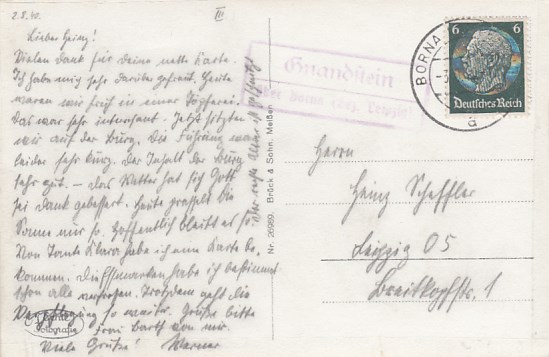 2.8.40.
III
Lieber Heinz!
Vielen Dank für deine nette Karte.
Ich habe mich sehr darüber gefreut. Heute
waren wir früh in einer Töpferei.
Das war sehr interessant. Jetzt
wir auf der Burg. Die Führung war
leider sehr kurz. Der Inhalt der Burg
sehr gut. – Das Wetter hat sich Gott
sei Dank gebessert. Heute prasselt die
Sonne nur so. Hoffentlich bleibt es so.
Von Tante Klara habe ich eine Karte be-
kommen. Die habe ich bestimmt
schon alle Trotzdem geht die
Verpflegung so weiter. Grüße bitte
Frau Barth von mir.
Viele Grüße! Werner
Nr. 26989. Brück & Sohn, Meißen
Echte
Fotografie
Gnandstein
über Borna (Bez. Leipzig)
BORNA
a
6 6
Deutsches Reich
Herrn
Heinz Scheffler
Leipzig O5
Breitkopfstr. 1